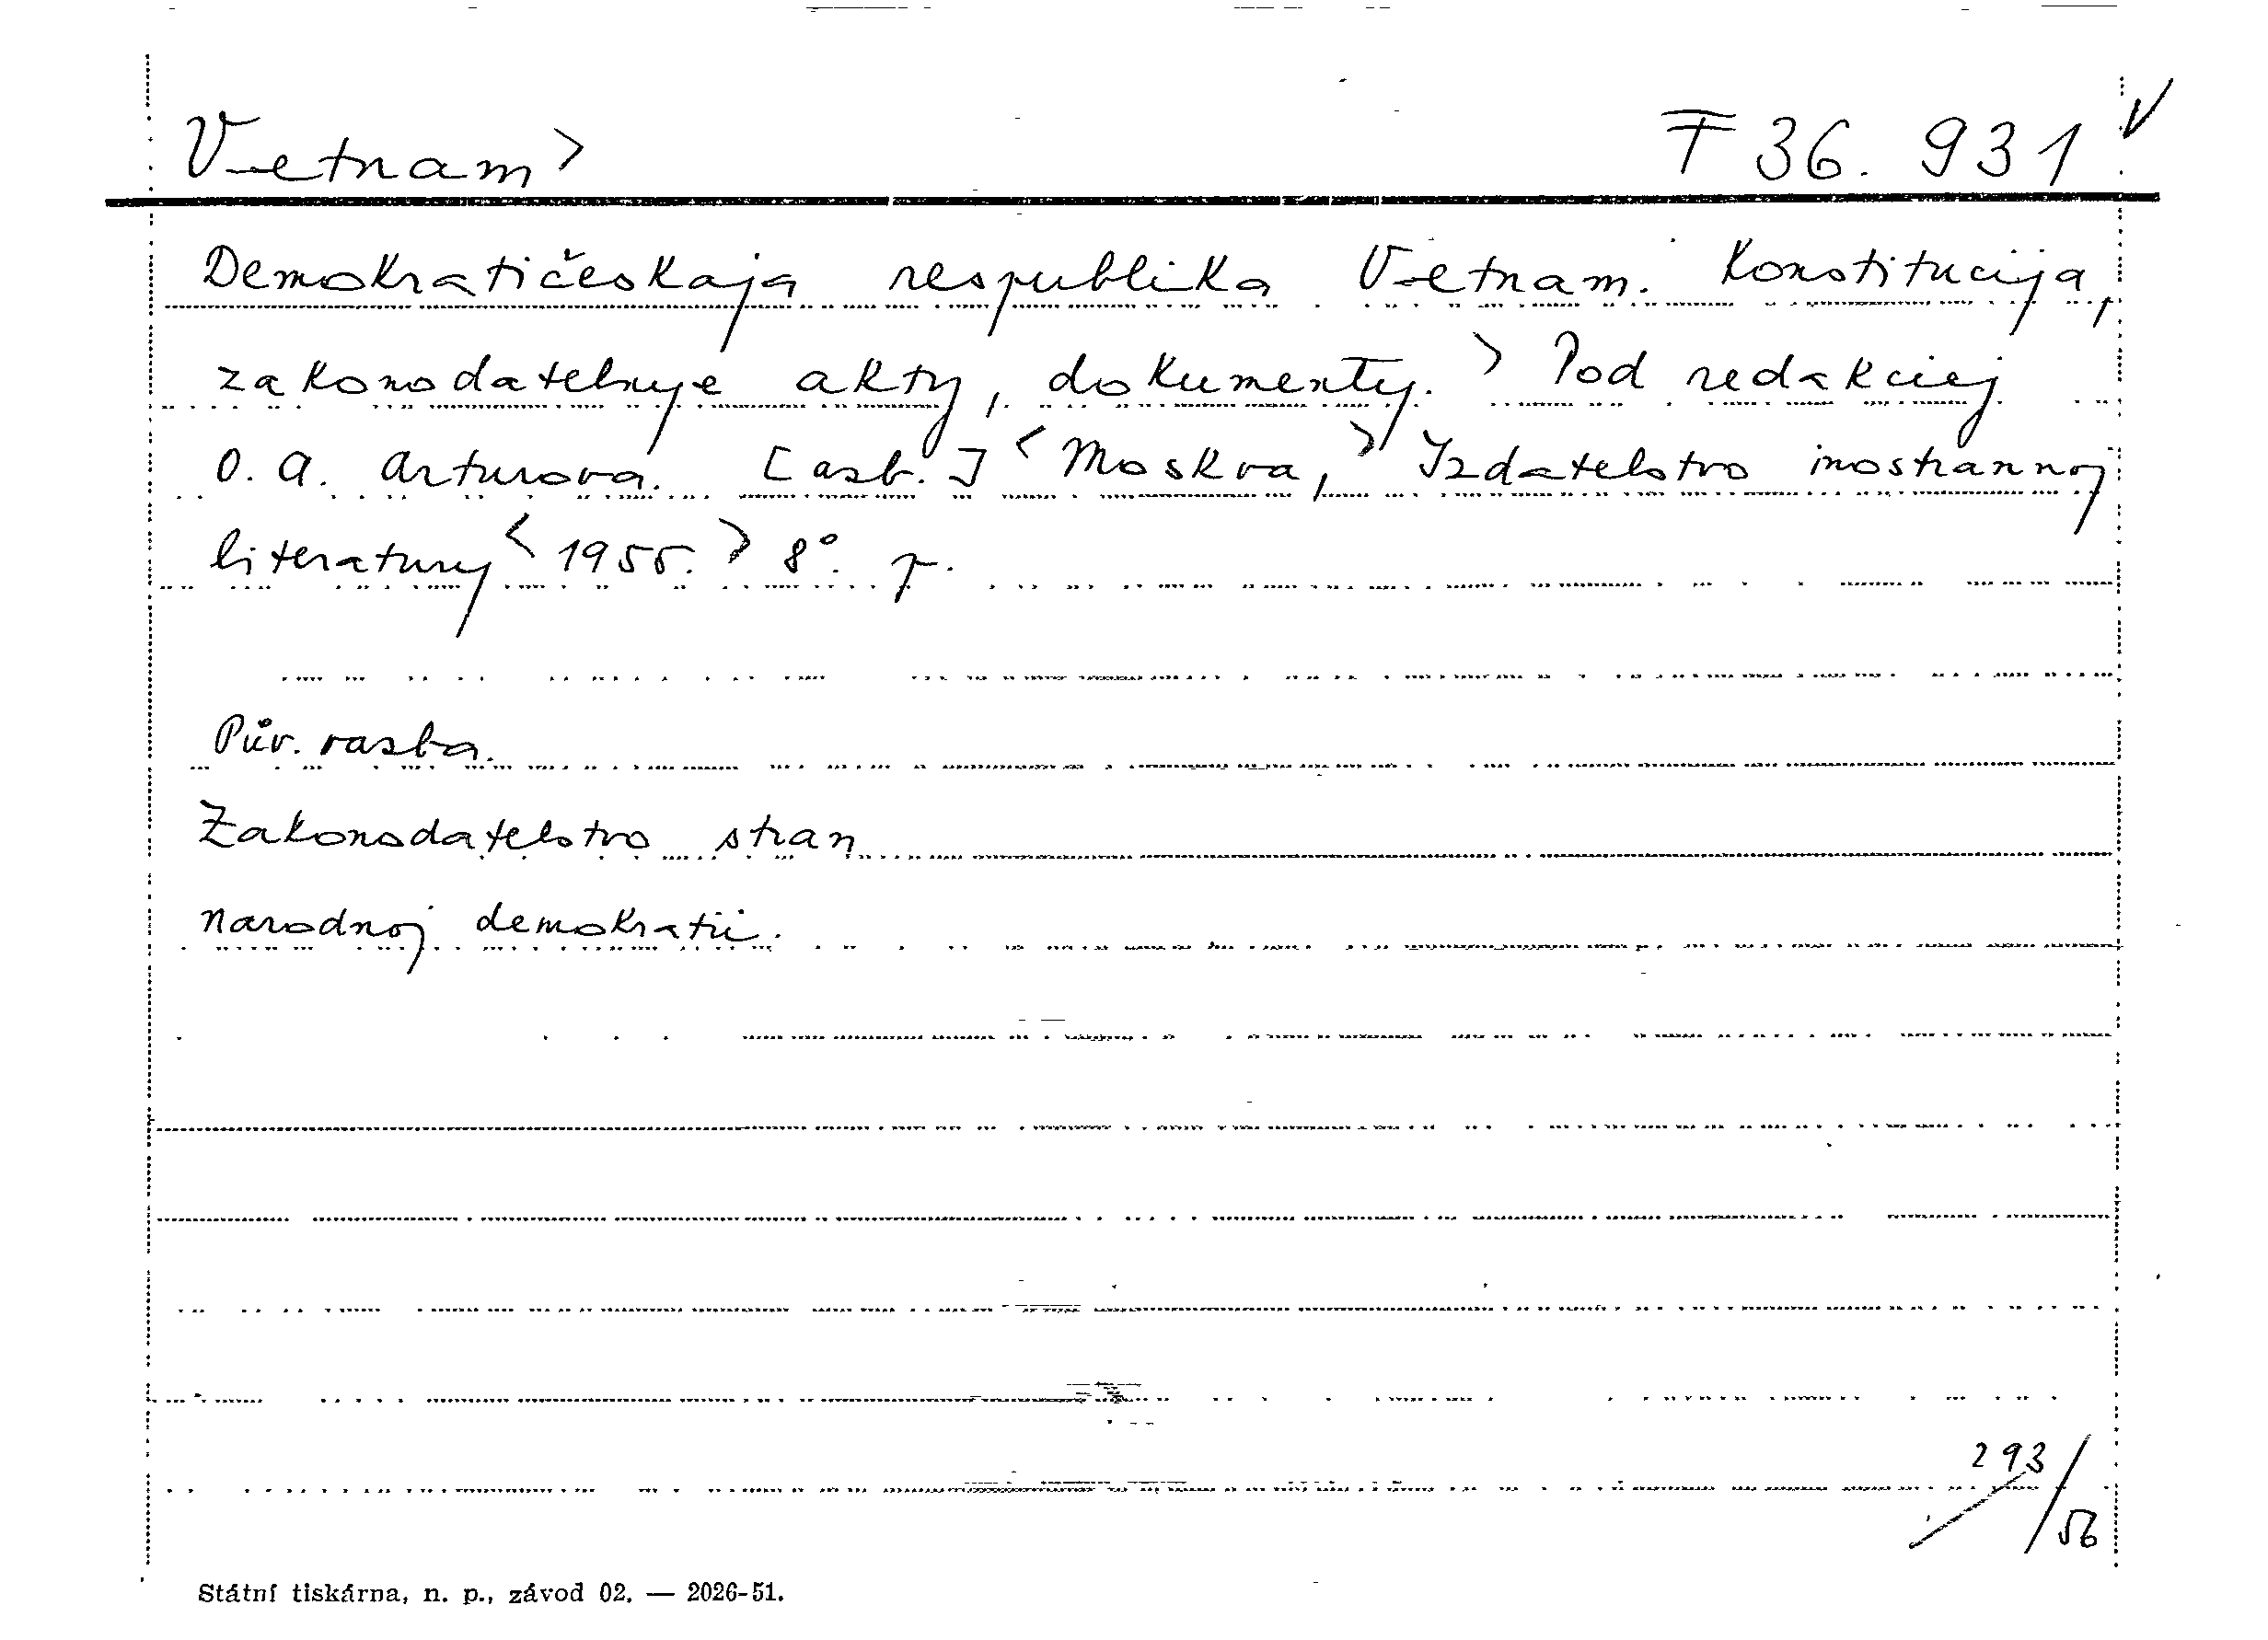 Vietnam > F 36.931 V
Demokratičeskaja respublika Vietnam. Konstitucija,
zakonodatelnyje akty, dokumenty. > Pod redakciej
O. A. Arturova. [azb.] < Moskva, > Izdatelstvo inostrannoj
literatury < 1955. > 8°. p.
Pův. vazba.
Zakonodatelstvo stran
narodnoj demokratii.
293/56
Státní tiskárna, n. p., závod 02. — 2026-51.